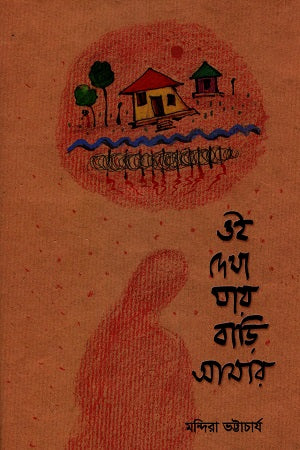 ওই
দেখা
যায়
বাড়ি
আমার
মন্দিরা ভট্টাচার্য